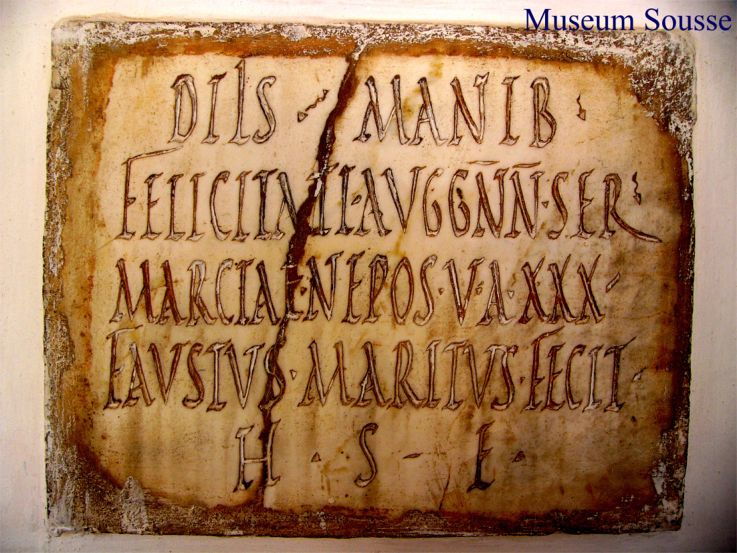 Museum Sousse
DIIS · MANIB ·
FELICITATI · AVGGN̄N̄ · SER ·
MARCIAE · NEPOS · V · A · XXX ·
FAVSTVS · MARITVS · FECIT ·
H · S · E ·